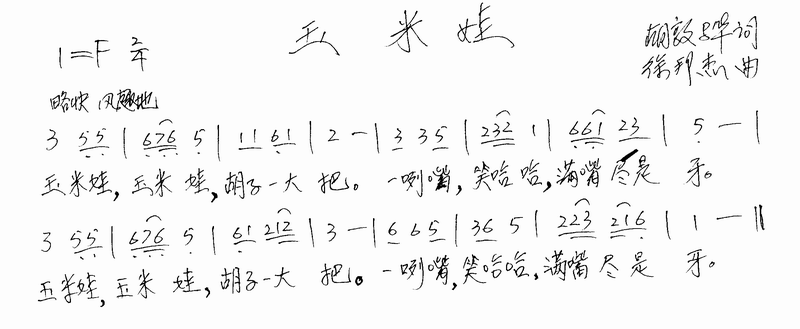 玉米娃
1=F 2/4
胡敦骅词
徐邦杰曲
略快 风趣地
3 55 | 676 5 | 11 61 | 2 - | 3 35 | 232 1 | 661 23 | 5 - |
玉米娃,玉米 娃,胡子一大 把。一咧嘴,笑哈 哈,满嘴尽是 牙。
3 55 | 676 5 | 61 212 | 3 - | 6 65 | 36 5 | 223 216 | 1 - ‖
玉米娃,玉米 娃,胡子一大 把。一咧嘴,笑哈哈,满嘴 尽 是 牙。